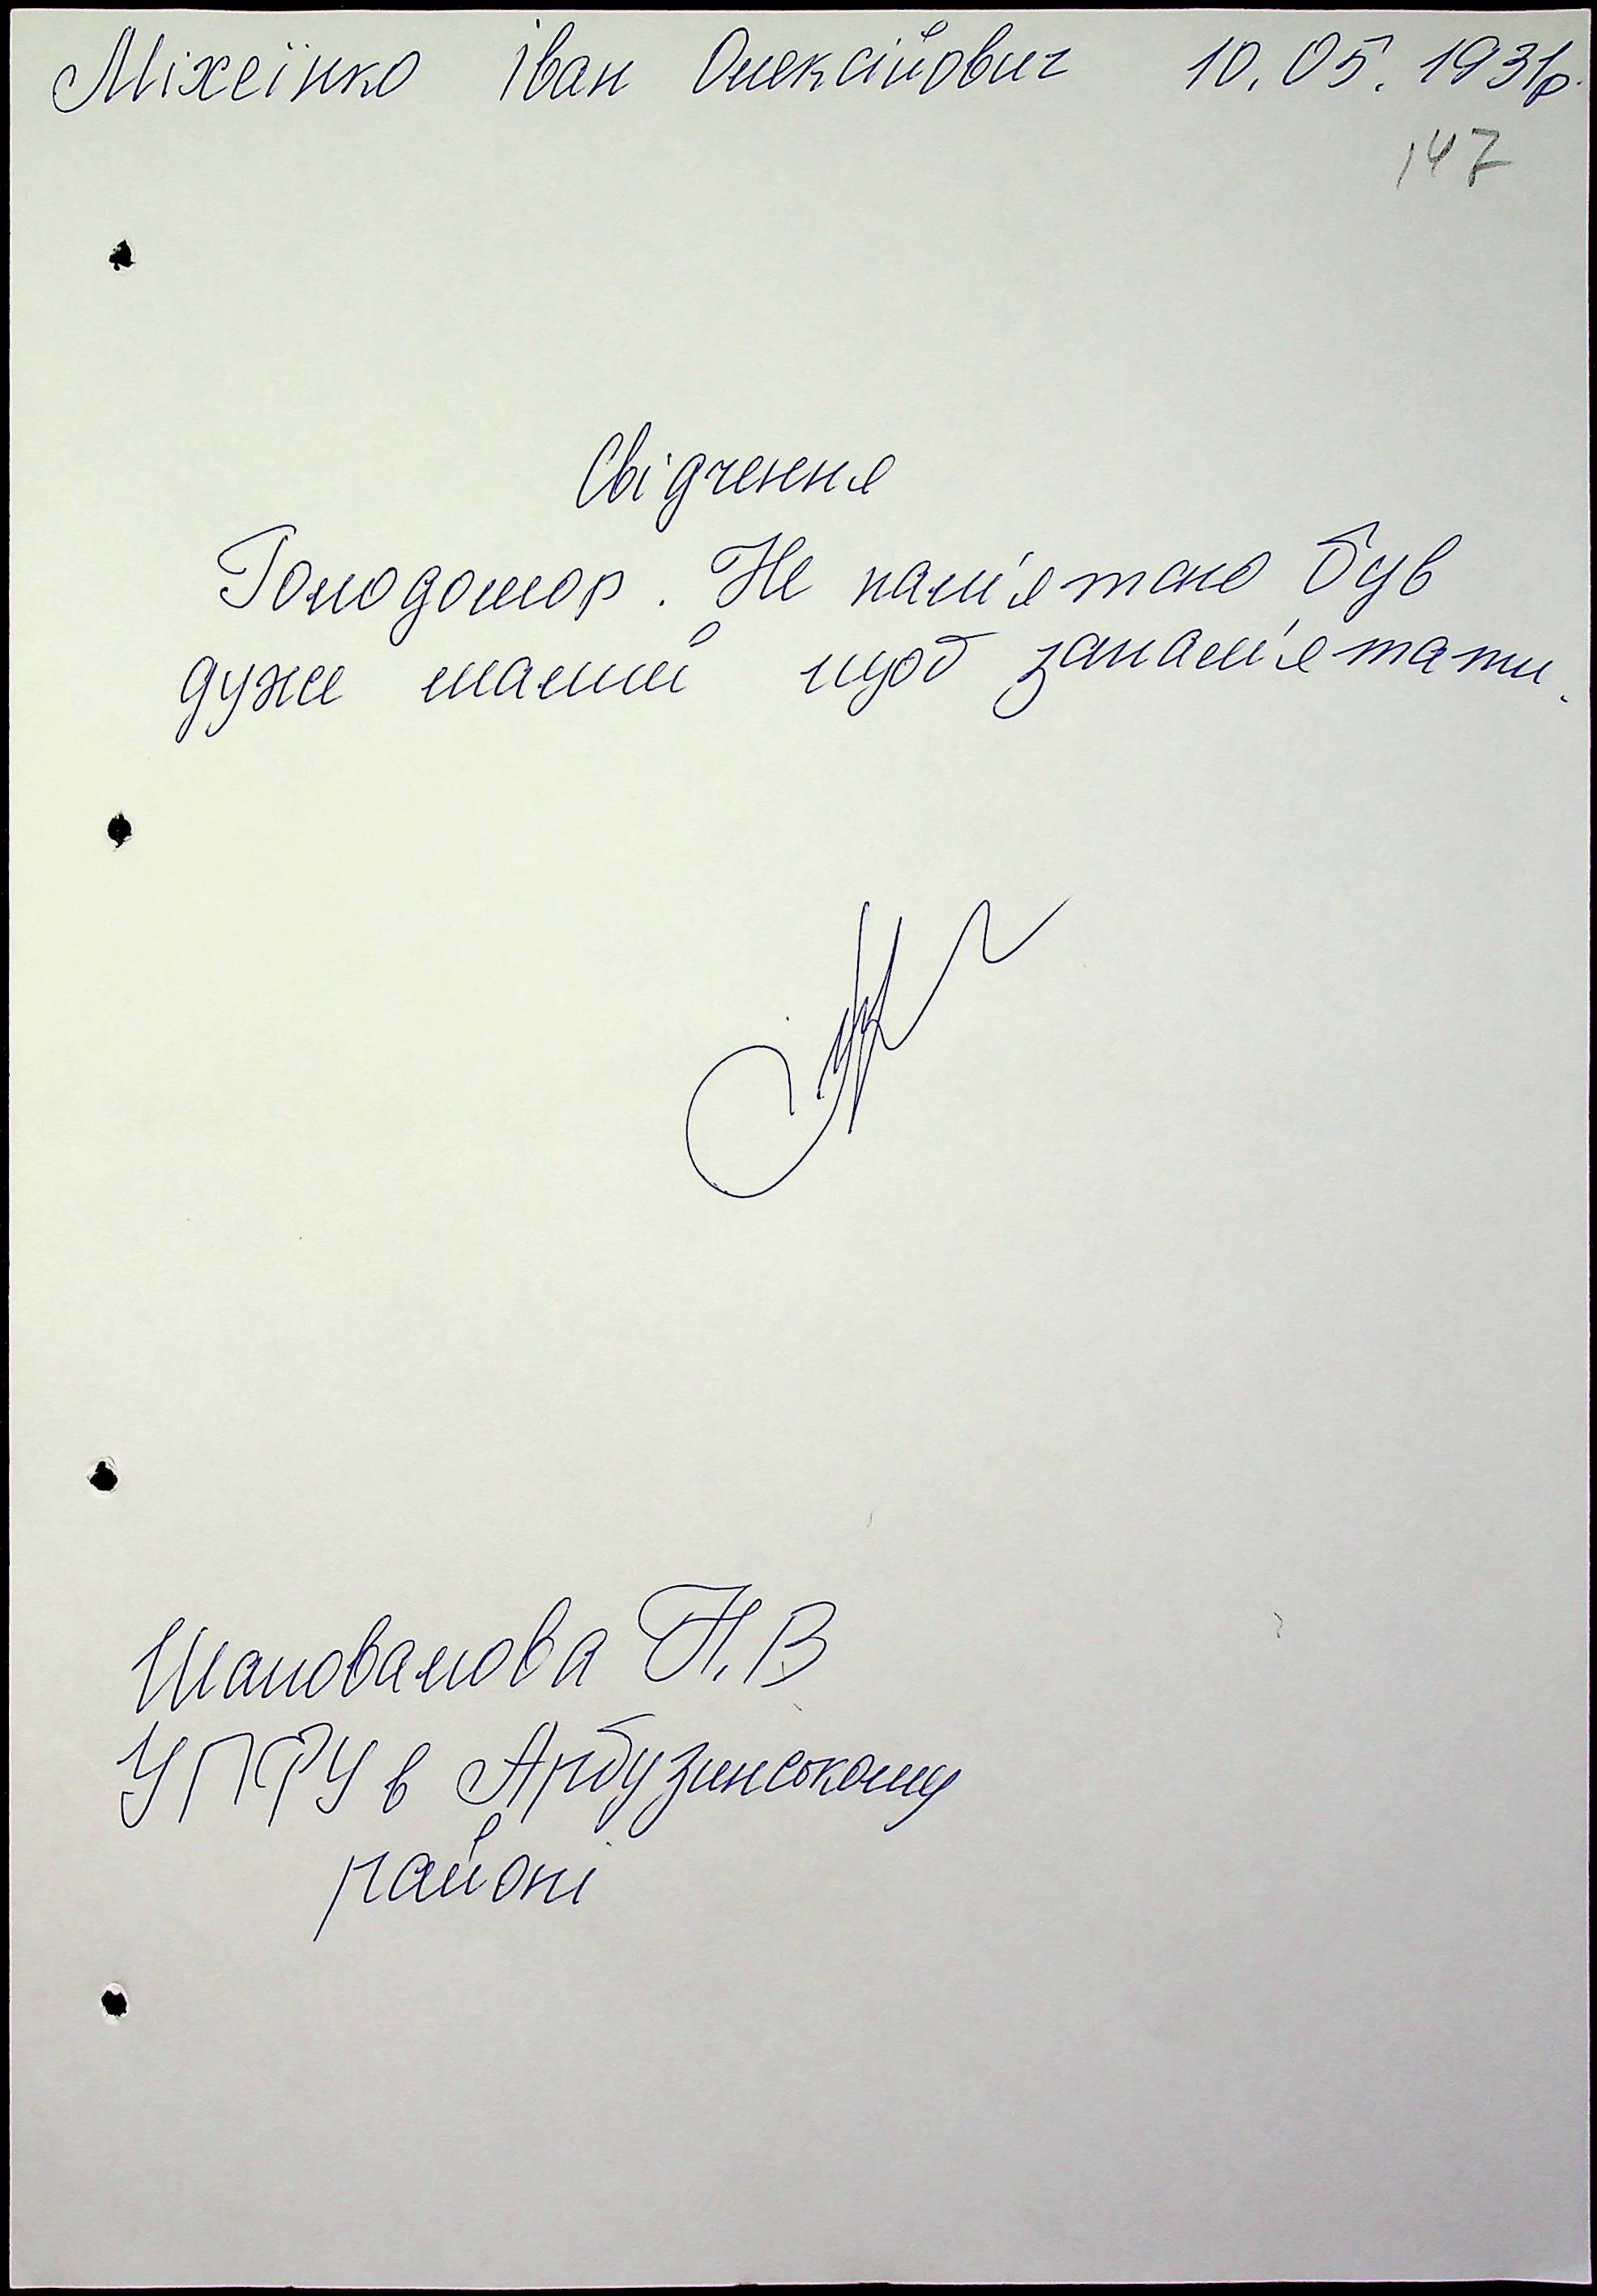 Міхеїнко Іван Олексійович 10.05.1931р.
147
Свідчення
Голодомор. Не пам'ятно був
дуже малий щоб запам'ятати.
Шаповалова Н.В
УПФУ в Арбузинському
районі